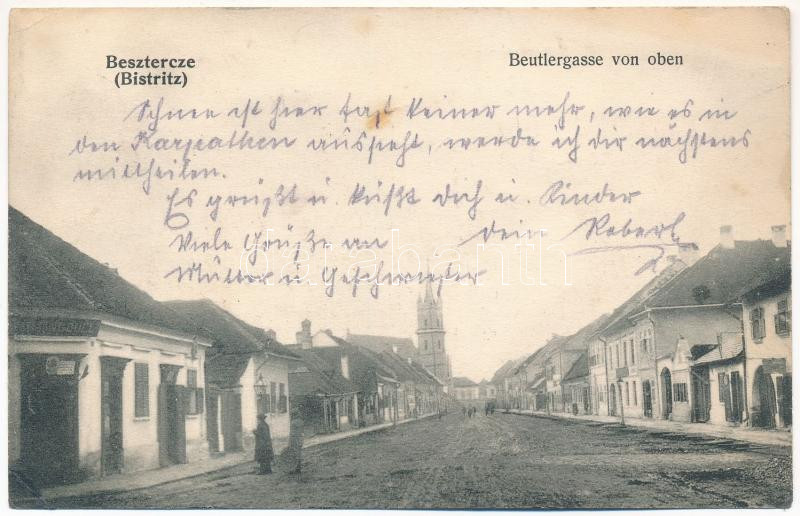 Besztercze
(Bistritz)
Beutlergasse von oben
Schnee ist hier fast keiner mehr, wie es in
den Karpathen aussieht, werde ich dir nächstens
mittheilen.
Es grüßt u. küßt dich u. Kinder
dein Robert
Viele Grüße an
Mutter u Geschwister
darabanth